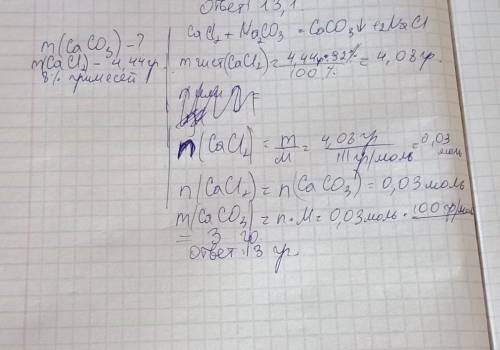 Ответ 13,1
m(CaCO3) - ?
m(CaCl2) - 4,44 гр
8% примесей
CaCl2 + Na2CO3 = CaCO3↓ + 2NaCl
m чист(CaCl2) = 4,44гр•92% / 100% = 4,08 гр.
n(CaCl2) = m/M = 4,08 гр / 111 гр/моль = 0,03 моль
n(CaCl2) = n(CaCO3) = 0,03 моль
m(CaCO3) = n•M = 0,03 моль • 100 гр/моль
= 3 гр
Ответ: 3 гр